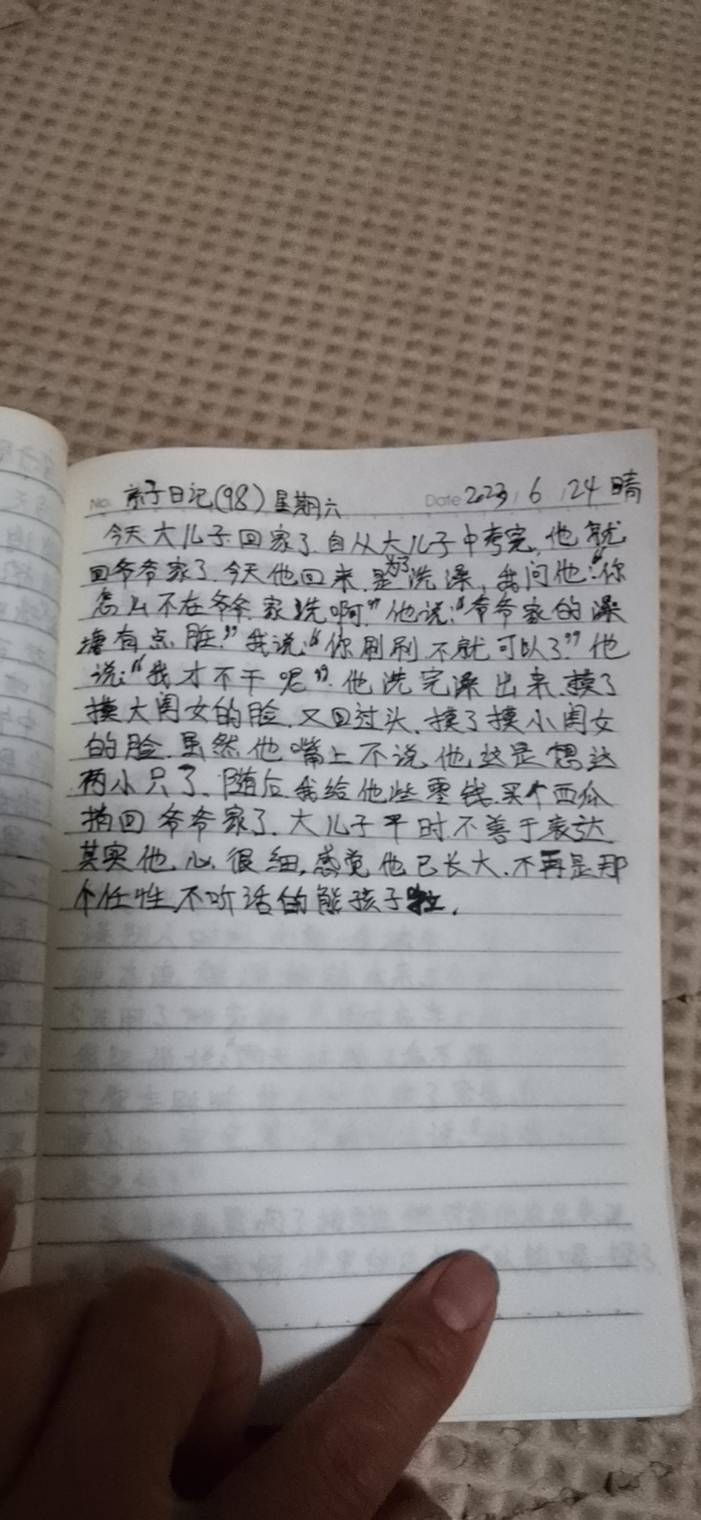 No. 亲子日记(98) 星期六 Date 2023 / 6 / 24 晴
今天大儿子回家了.自从大儿子中考完,他就
回爷爷家了.今天他回来,是为了洗澡,我问他:“你
怎么不在爷爷家洗啊”他说:“爷爷家的澡
塘有点脏.”我说:“你刷刷不就可以了”他
说:“我才不干呢”.他洗完澡出来.摸了
摸大闺女的脸.又回过头.摸了摸小闺女
的脸.虽然他嘴上不说他这是想这
两小只了.随后.我给他些零钱.买个西瓜
捎回爷爷家了.大儿子平时不善于表达
其实他心很细,感觉他已长大.不再是那
个任性不听话的熊孩子啦.